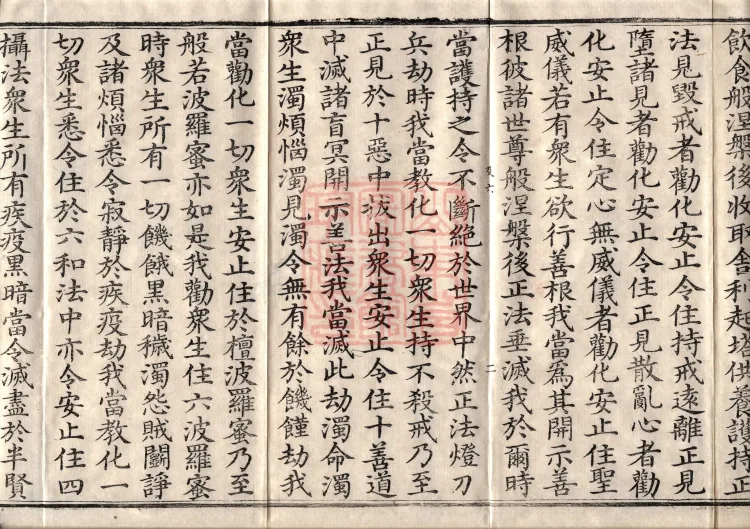 飲食般涅槃後收取舍利起塔供養護持正
法見毀戒者勸化安止令住持戒遠離正見
墮諸見者勸化安止令住正見散亂心者勸
化安止令住定心無威儀者勸化安止住聖
威儀若有衆生欲行善根我當爲其開示善
根彼諸世尊般涅槃後正法垂滅我於爾時
當護持之令不斷絕於世界中然正法燈刀
兵劫時我當教化一切衆生持不殺戒乃至
正見於十惡中拔出衆生安止令住十善道
中滅諸盲冥開示善法我當滅此劫濁命濁
衆生濁煩惱濁見濁令無有餘於饑饉劫我
當勸化一切衆生安止住於檀波羅蜜乃至
般若波羅蜜亦如是我勸衆生住六波羅蜜
時衆生所有一切饑餓黑暗穢濁怨賊鬭諍
及諸煩惱悉令寂靜於疾疫劫我當教化一
切衆生悉令住於六和法中亦令安止住四
攝法衆生所有疾疫黑暗當令滅盡於半賢